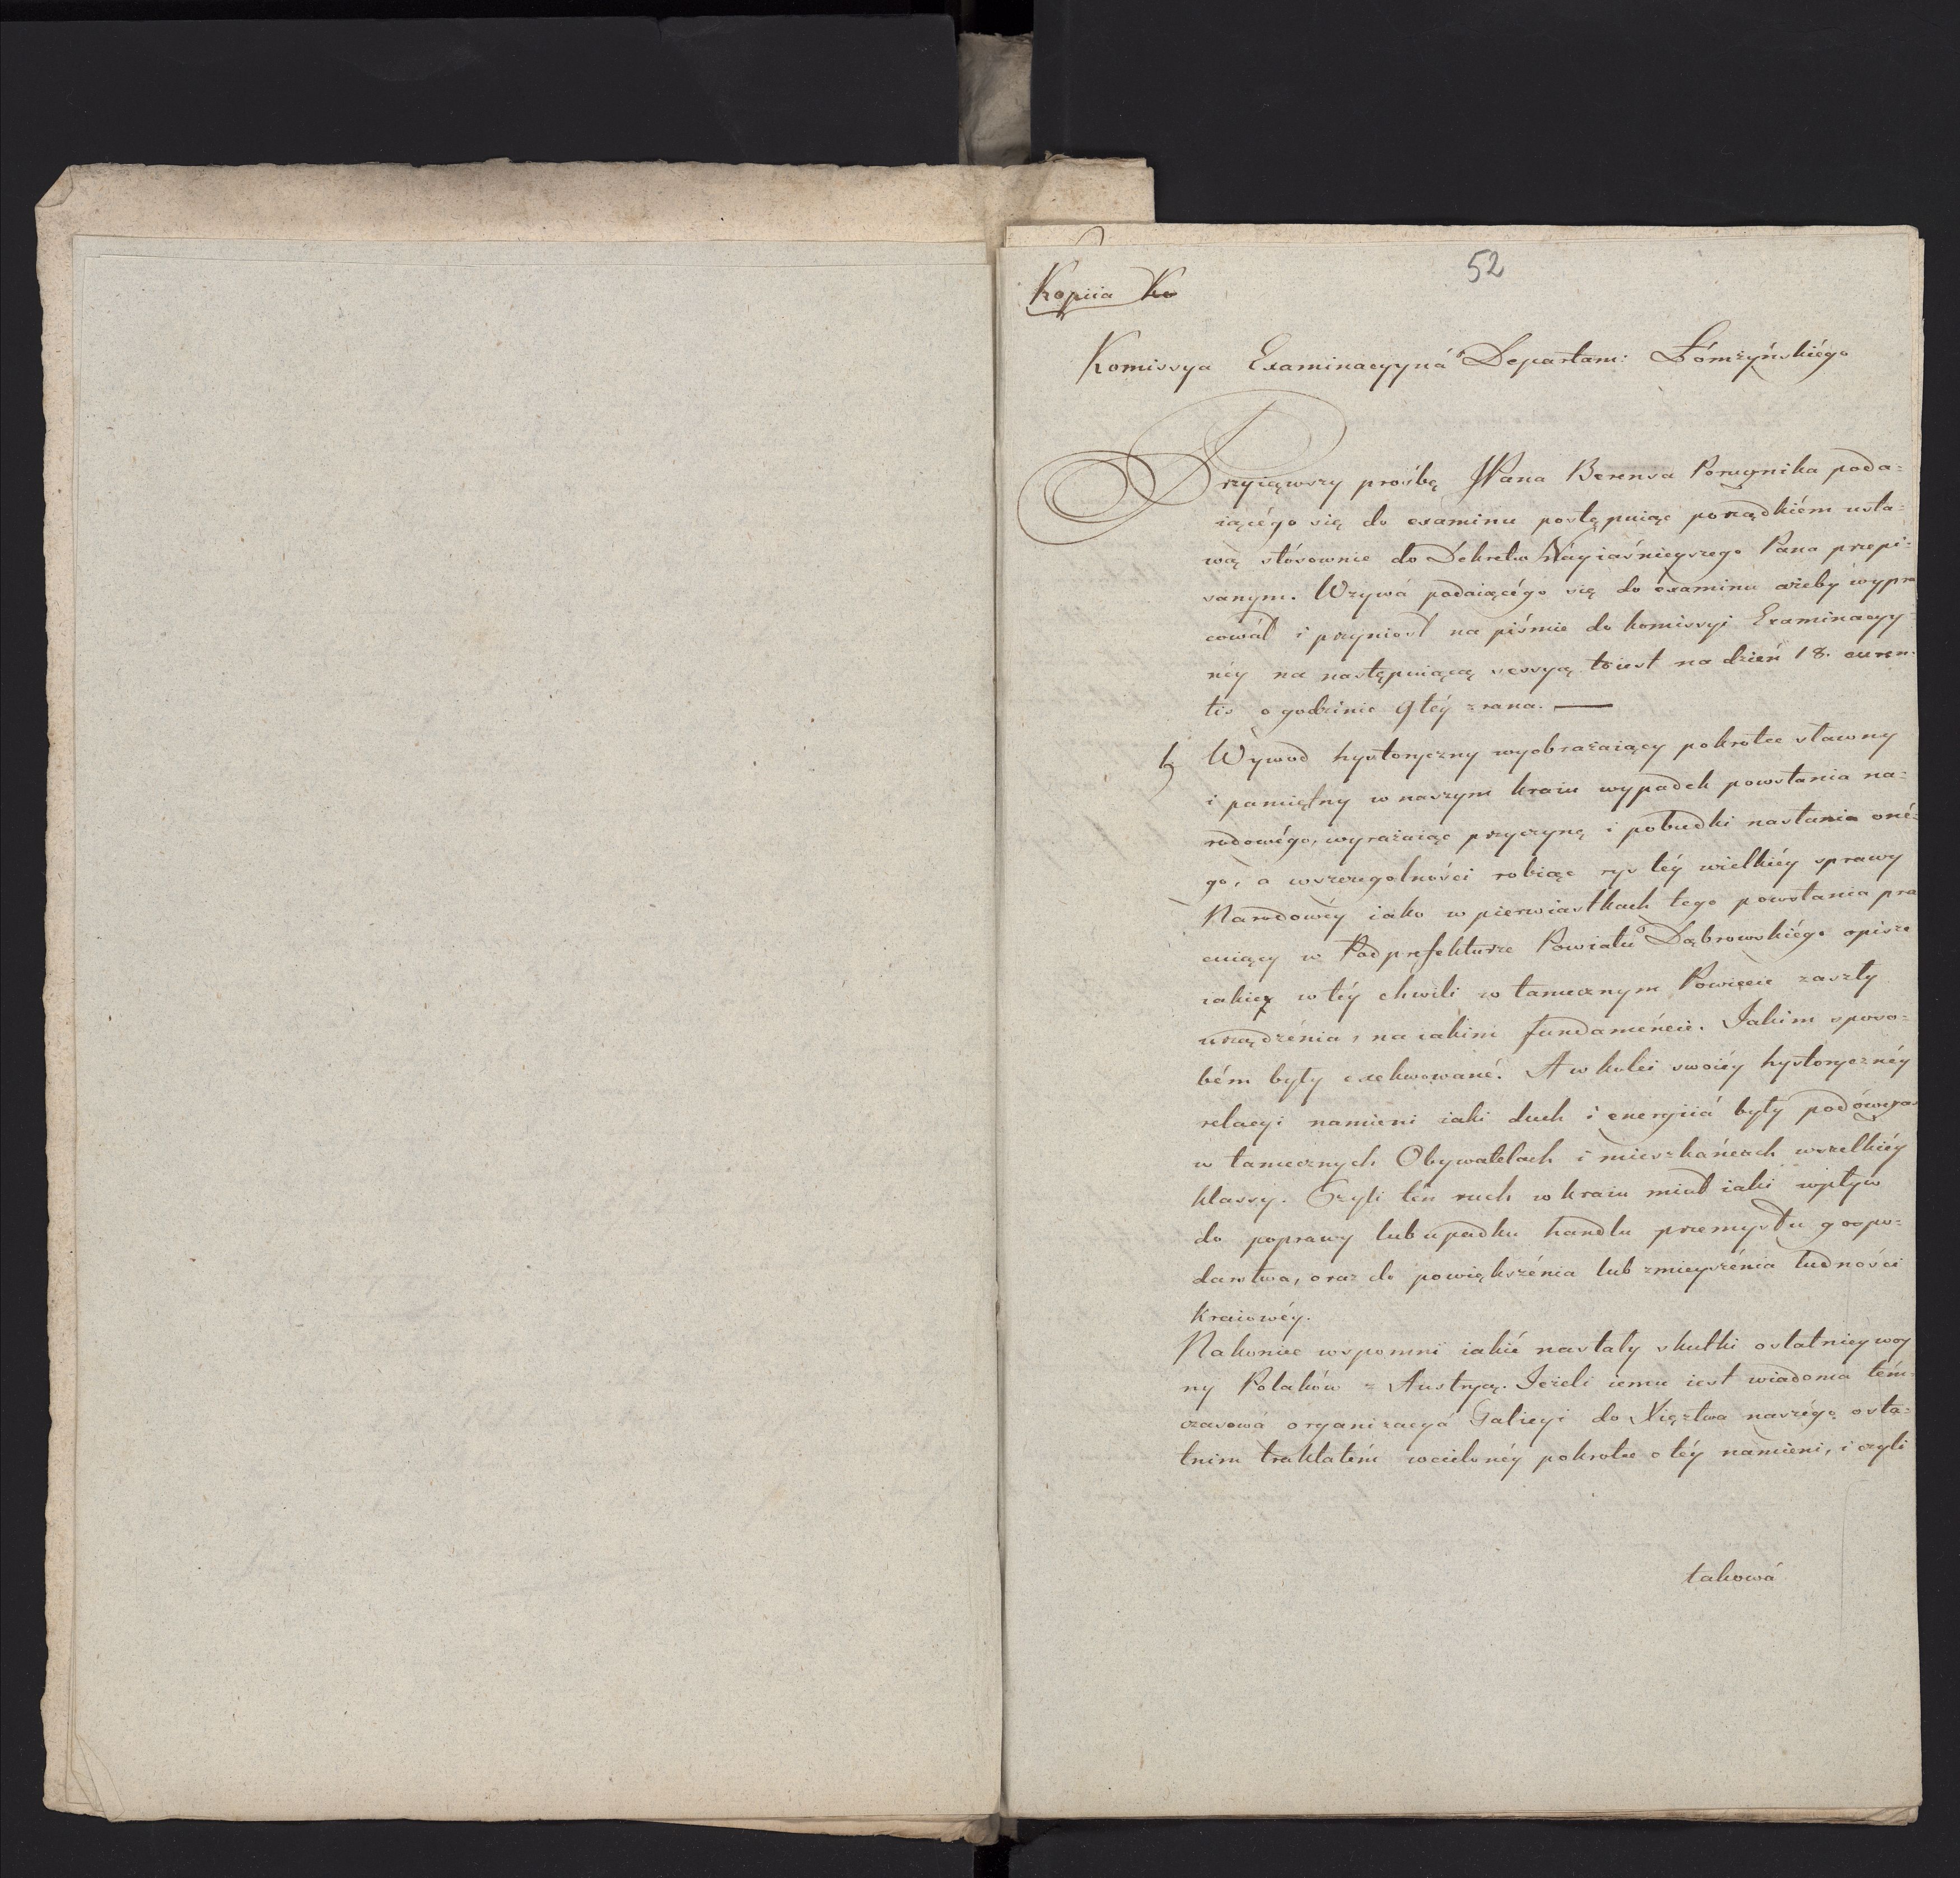 52
Kopiia Ko
Komissya Examinacyyná Departam: Łómżyńskiégo
Przyiąwszy proźbę JPana Berensa Porucznika poda=
iącégo się do examinu postępuiąc porządkiém usta=
wą stósownie do Dekretu Nayiaśnieyszego Pana przepi=
sanym. Wzywá podaiącégo się do examinu ażeby wypra
cowáł i przyniosł na piśmie do komissyi Examinacyy
néy na następuiącą sessyą toiest na dzień 18. curren=
tis o godzinie 9téy zrana. —
Wywod hystoryczny wyobrażaiący pokrotce sławny
i pamiętny w naszym kraiu wypadek powstania na=
rodowégo, wyrażaiąc przyczynę i pobudki nastania oné=
go, a wszczegolności robiąc rys téy wielkiéy sprawy
Narodowéy iako w pierwiastkach tego powstania pra
cuiący w Podprefekturze Powiatu Dąbrowskiégo opisze
iakie w téy chwili w tamecznym Powiecie zaszły
urządzénia, na iakim fundaméncie. Jakim sposo=
bém były exekwowané. A w kolei swoiéy hystorycznéy
relacyi namieni iaki duch i energiiá były podówczas
w tamecznych Obywatelach i mieszkáńcach wszelkiéy
klassy. Czyli tén ruch w kraiu miał iaki wpływ
do poprawy lub upadku handlu przemysłu gospo=
darstwa, oraz do powiększénia lub zmieyszénia ludności
kraiowéy.
Nakoniec wspomni iakié nastały skutki ostatniey woy
ny Polaków z Austryą. Jeżeli iemu iest wiadoma tém
czasowá organizacyá Galicyi do Xięztwa naszégo osta=
tnim traktatém wcielonéy pokrotce o téy namieni, i czyli
takowá